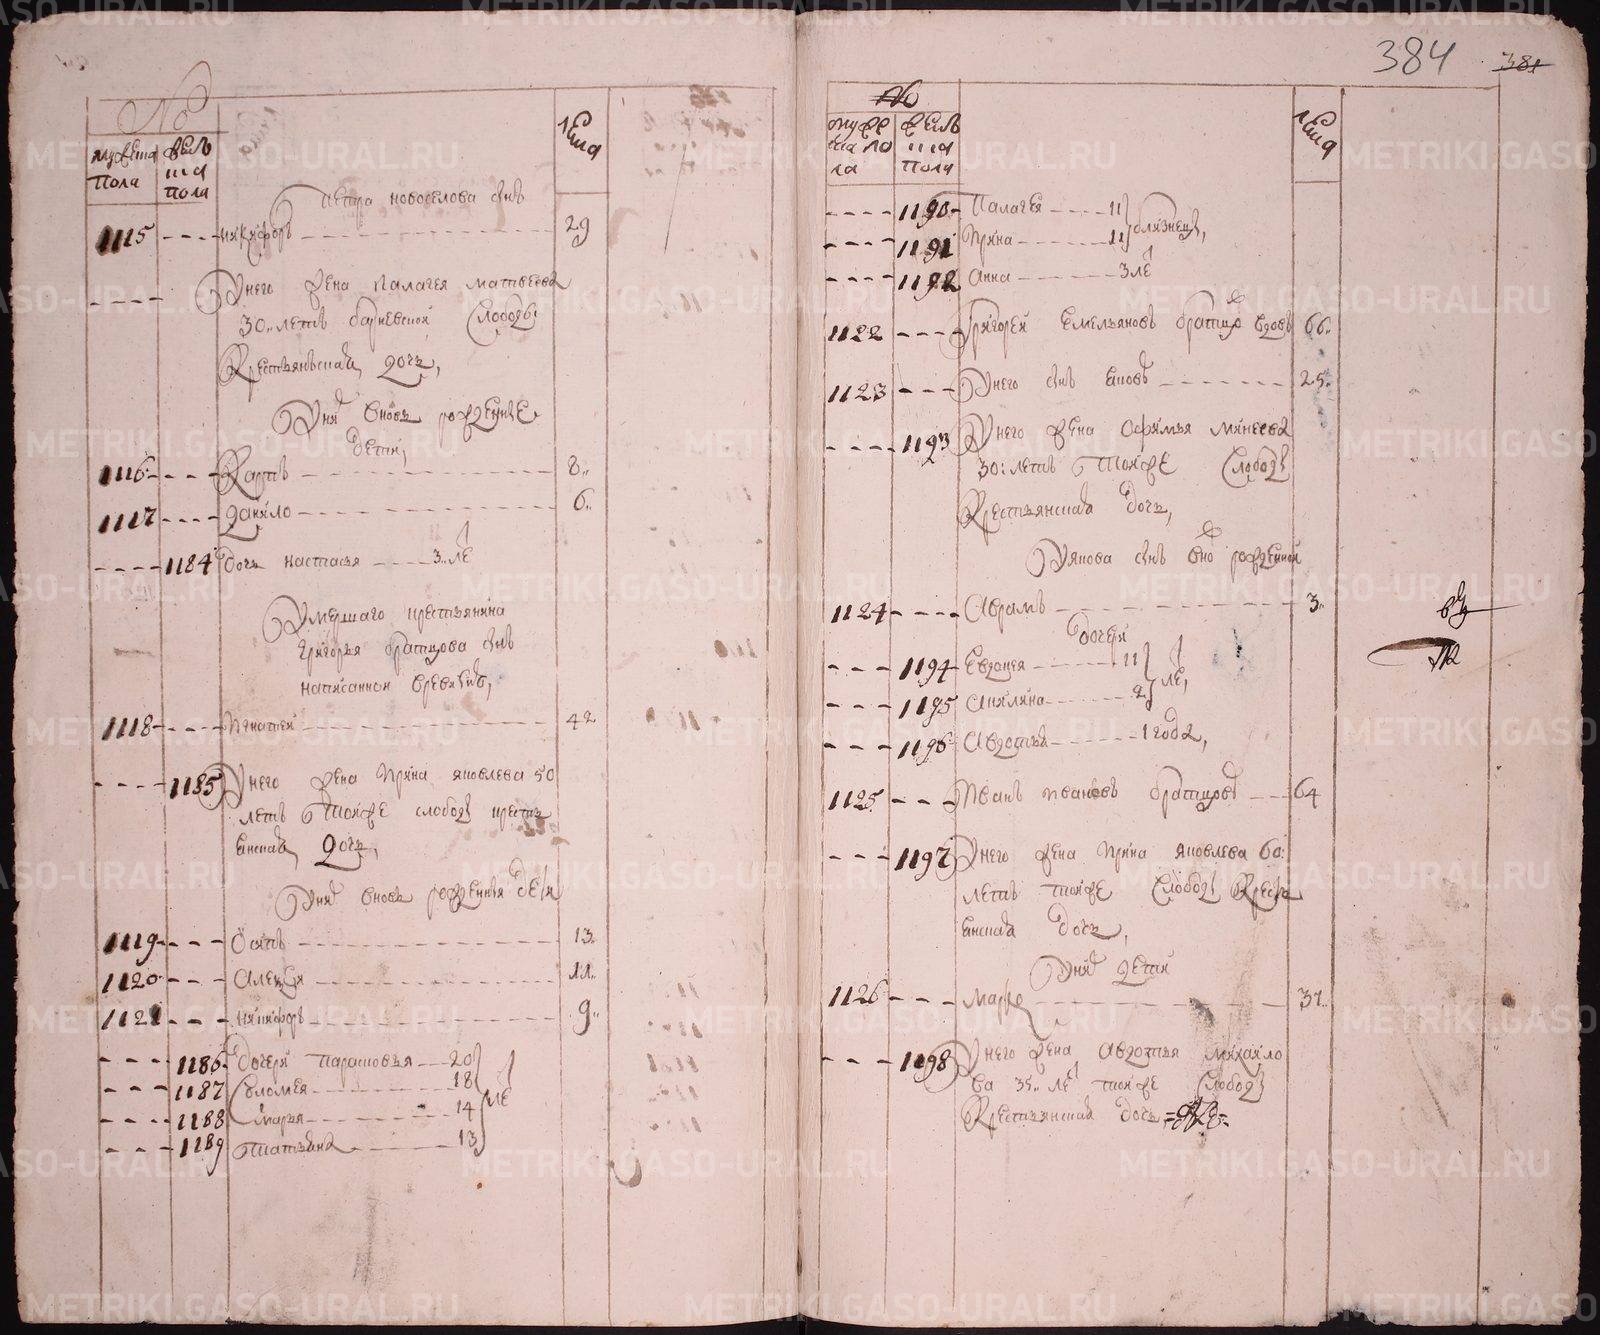 384 381
№
мужеска пола
женска пола
лета
Петра Новоселова снъ
1115 Никифоръ 29
Унего жена Палагея Матвеева
30 летъ барневской слободы
крестьянская дочь,
Уних вновь рожденные
дети,
1116 Карпъ 8
1117 Данило 6
1184 дочь Настасья 3 ле
Умершаго крестьянина
Григорья братцова снъ
написанной вревизию,
1118 Игнатей 42
1185 Унего жена Ирина Яковлева 50
летъ тойже слободы кресть
янская дочь,
Уних вновь рожденныя дети
1119 Осипъ 13
1120 Алексей 11
1121 Никифоръ 9
1186 дочери Парасковья 20
1187 Соломея 18
1188 Марья 14 ле
1189 Татьяна 13
№
мужеска пола
женска пола
лета
1190 Палагея 11
1191 Ирина 11 близнецы,
1192 Анна 3 ле
1122 Григорей Емельяновъ братцо вдовъ 66
1123 Унего снъ Яковъ 25
1193 Унего жена Офимья Минеева
30 летъ тойже слободы
крестьянская дочь,
Уякова снъ вно рожденной
1124 Аврамъ 3
дочери
1194 Евдокея 11
1195 Акилина 2 ле,
1196 Авдотья 1 года,
1125 Иванъ Ивановъ братцовъ 64
1197 Унего жена Ирина Яковлева 60
летъ тойже слободы кресть
янская дочь,
Уних дети
1126 Марко 37
1198 Унего жена Авдотья Михайло
ва 35 ле тойже слободы
крестьянская дочь
METRIKI.GASO-URAL.RU